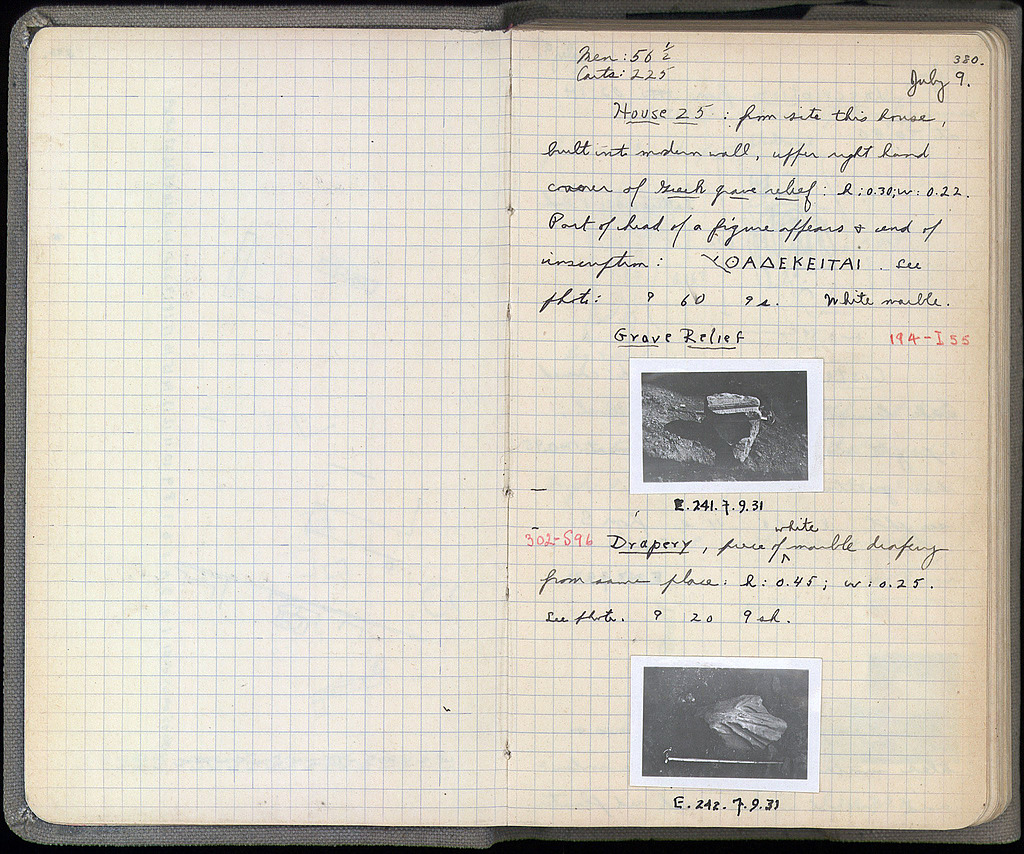 380.
Men: 56 1/2
Carts: 225
July 9.
House 25 : from site this house,
built into modern wall, upper right hand
corner of Greek grave relief: h: 0.30; w: 0.22.
Part of head of a figure appears & end of
inscription: ΘΑΔΕΚΕΙΤΑΙ. See
photo: 9 60 9 s. White marble.
Grave Relief 194-I 55
E. 241. 7. 9. 31
302-S96 Drapery, piece of white marble drapery
from same place: h: 0.45; w: 0.25.
See photo. 9 20 9 sh.
E. 242. 7. 9. 31